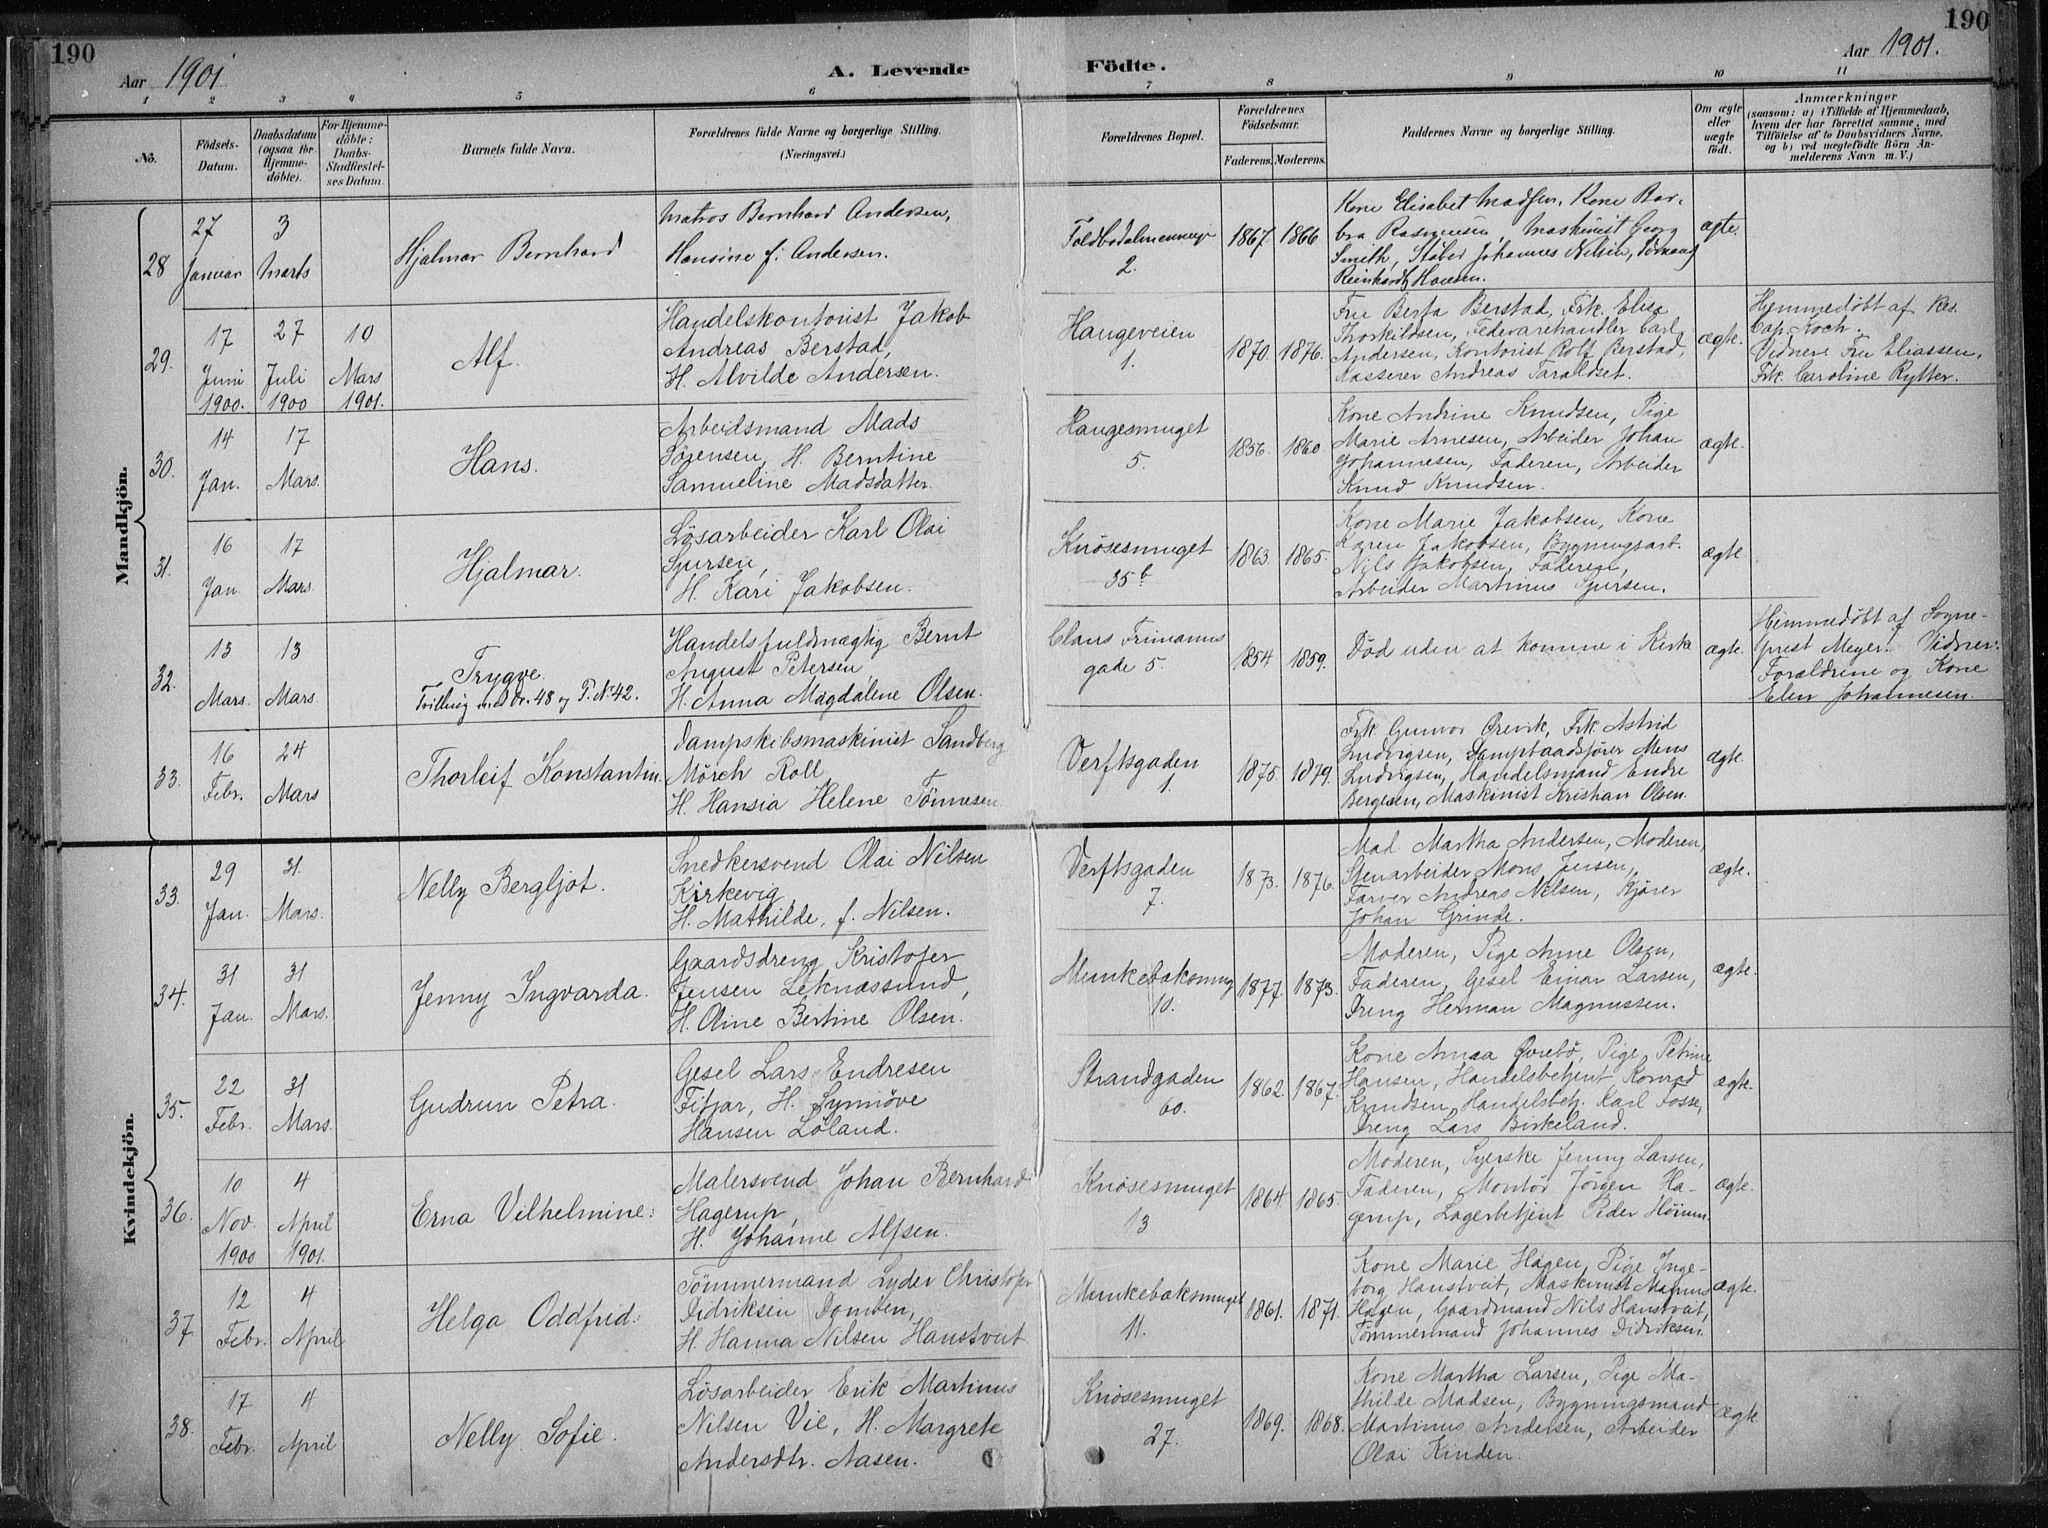 190
190
Aar 1901
A. Levende
Födte.
Aar 1901.
1 2 3 4 5 6 7 8 9 10 11
No.
Födsels-
Datum.
Daabsdatum
(ogsaa for
Hjemme-
döbte).
For Hjemme-
döbte:
Daabs-
Stadfæstel-
ses Datum.
Barnets fulde Navn.
Forældrenes fulde Navne og borgerlige Stilling.
(Næringsvei.)
Forældrenes Bopæl.
Forældrenes
Födselsaar.
Faderens. Moderens.
Faddernes Navne og borgerlige Stilling.
Om ægte
eller
uægte
födt.
Anmærkninger
(saasom: a) i Tilfælde af Hjemmedaab,
hvem der har forrettet samme, med
Tilföielse af to Daabsvidners Navne,
og b) ved uægtefödte Börn An-
melderens Navn m. V.)
Mandkjön.
28
27
Januar
3
Marts
Hjalmar Bernhard
Matros Bernhard Andersen,
Hansine f. Andersen.
Toldbodalmenning
2.
1867. 1866
Kone Elisabet Madssen, Kone Bar-
bra Rasmussen, Maskinist Georg
Smith, Støber Johannes Nilsen,
Reinhardt Hansen.
ægte.
29.
17
Juni
1900.
27
Juli
1900
10
Mars
1901.
Alf.
Handelskontorist Jakob
Andreas Berstad,
H. Alvilde Andersen.
Haugeveien
1.
1870. 1876.
Fru Berta Berstad, Frk. Elise
Thorkildsen, Fedevarehandler Carl
Andersen, Kontorist Rolf Berstad,
Kasserer Andreas Taraldset.
ægte.
Hjemmedøbt af Res.
Cap. Koch.
Vidner: Fru Eliassen,
Frk. Caroline Rytter.
30.
14
Jan.
17
Mars.
Hans.
Arbeidsmand Mads
Sørensen, H. Berntine
Samueline Madsdatter.
Haugesmuget
5.
1856. 1860.
Kone Andrine Knudsen, Pige
Marie Arnesen, Arbeider Johan
Johannesen, Faderen, Arbeider
Knud Knudsen.
ægte.
31.
16
Jan.
17
Mars.
Hjalmar.
Løsarbeider Karl Olai
Sjursen,
H. Kari Jakobsen.
Knøsesmuget
35b
1863. 1865.
Kone Marie Jakobsen, Kone
Karen Jakobsen, Bygningsarb.
Nils Jakobsen, Faderen,
Arbeider Martinus Sjursen.
ægte.
32.
13
Mars.
13
Mars.
Trygve.
Tvilling med Nr. 48 og P. No 42.
Handelsfuldmægtig Bernt
August Petersen
H. Anna Magdalene Olsen.
Claus Frimanns
gade 5.
1854 1859.
Død uden at komme i Kirke
ægte.
Hjemmedøbt af Sogne-
prest Meyer. Vidner:
Forældrene og Kone
Elen Johannesen.
33.
16
Febr.
24
Mars
Thorleif Konstantin.
Dampskibsmaskinist Sandberg
Mörch Roll
H. Hansia Helene Tönnesen
Verftsgaden
1.
1875. 1879.
Frk. Gunvor Orevik, Frk. Astrid
Ludvigsen, Dampbaadsfører Mens
Ludvigsen, Handelsmand Endre
Bergesen, Maskinist Kristian Olsen.
ægte.
Kvindekjön.
33.
29
Jan.
31.
Mars.
Nelly Bergljot.
Snedkersvend Olai Nilsen
Kirkevig,
H. Mathilde, f. Nilsen.
Verftsgaden
7.
1873. 1876.
Mad Martha Andersen, Moderen,
Stenarbeider Mons Jensen,
Farver Andreas Nilsen, Kjører
Johan Grinde.
ægte.
34.
31
Jan.
31
Mars.
Jenny Ingvarda.
Gaardsdreng Kristofer
Jensen Leknæssund,
H. Oline Bertine Olsen.
Munkebæksmug
10.
1877. 1873.
Moderen, Pige Anne Olsen,
Faderen, Gesel Einar Larsen,
Dreng Herman Magnussen.
ægte.
35.
22
Febr.
31
Mars.
Gudrun Petra.
Gesel Lars Endresen
Fitjar, H. Synnöve
Hansen Løland.
Strandgaden
60.
1862. 1867.
Kone Anna Øvrebö, Pige Petrine
Hansen, Handelsbetjent Konrad
Knudsen, Handelsbetj. Karl Fosse,
Dreng Lars Birkeland.
ægte.
36.
10
Nov.
1900
4
April
1901.
Erna Vilhelmine.
Malersvend Johan Bernhard
Hagerup,
H. Johanne Alfsen.
Knøsesmuget
13
1864. 1865.
Moderen, Syerske Jenny Larsen,
Faderen, Montör Jörgen Ha-
gerup, Lagerbetjent Peder Höium.
ægte.
37.
12
Febr.
4
April
Helga Oddfrid.
Tömmermand Lyder Christofer
Didriksen Domben,
H. Hanna Nilsen Haustveit
Munkebæksmuget
11.
1861. 1871.
Kone Marie Hagen, Pige Inge-
borg Haustveit, Maskinist Magnus
Hagen, Gaardmand Nils Haustveit,
Tömmermand Johannes Didriksen.
ægte.
38.
17
Febr.
4
April
Nelly Sofie.
Løsarbeider Erik Martinus
Nilsen Vie, H. Margrete
Andersdtr. Aasen.
Knøsesmuget
27.
1869. 1868.
Kone Martha Larsen, Pige Ma-
thilde Madsen, Bygningsmand
Martinus Andersen, Arbeider
Olai Kinden.
ægte.